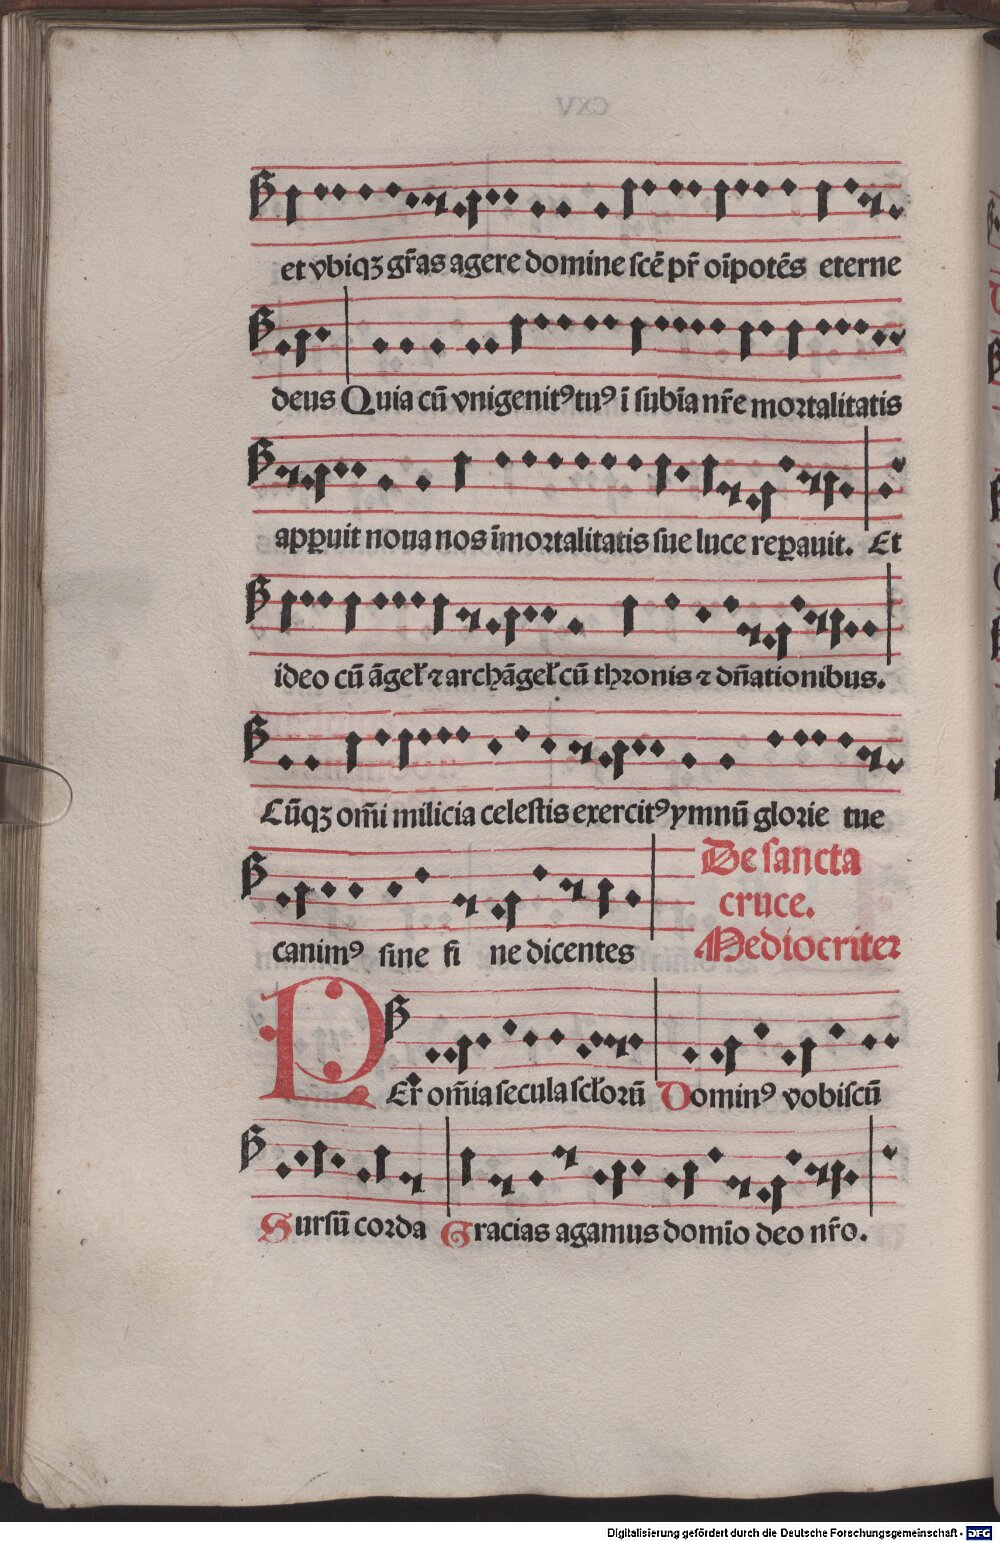 et vbiqꝫ gr̃as agere domine scẽ pr̃ oĩpotẽs eterne
deus Quia cũ vnigenitꝰ tuꝰ ĩ subĩa nr̃e mortalitatis
apꝑuit noua nos ĩmortalitatis sue luce reꝑauit. Et
ideo cũ ãgeł ⁊ archãgeł cũ thronis ⁊ dñationibus.
Cũqꝫ om̃i milicia celestis exercitꝰ ymnũ glorie tue
De sancta
cruce.
canimꝰ sine fi ne dicentes
Mediocriter
PEr̃ om̃ia secula scłorũ Dominꝰ vobiscũ
Sursũ corda Gracias agamus domĩo deo nr̃o.
Digitalisierung gefördert durch die Deutsche Forschungsgemeinschaft - DFG